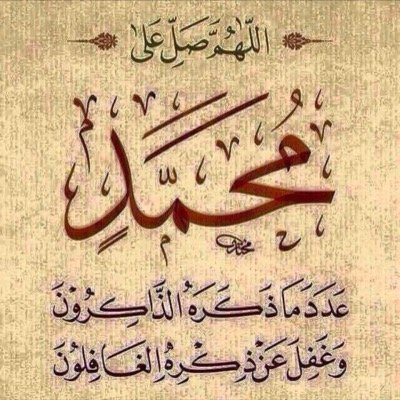 اللَّهُمَّ صَلِّ عَلَى
مُحَمَّدٍ
عَدَدَ مَا ذَكَرَهُ الذَّاكِرُونَ
وَغَفِلَ عَنْ ذِكْرِهِ الغَافِلُونَ